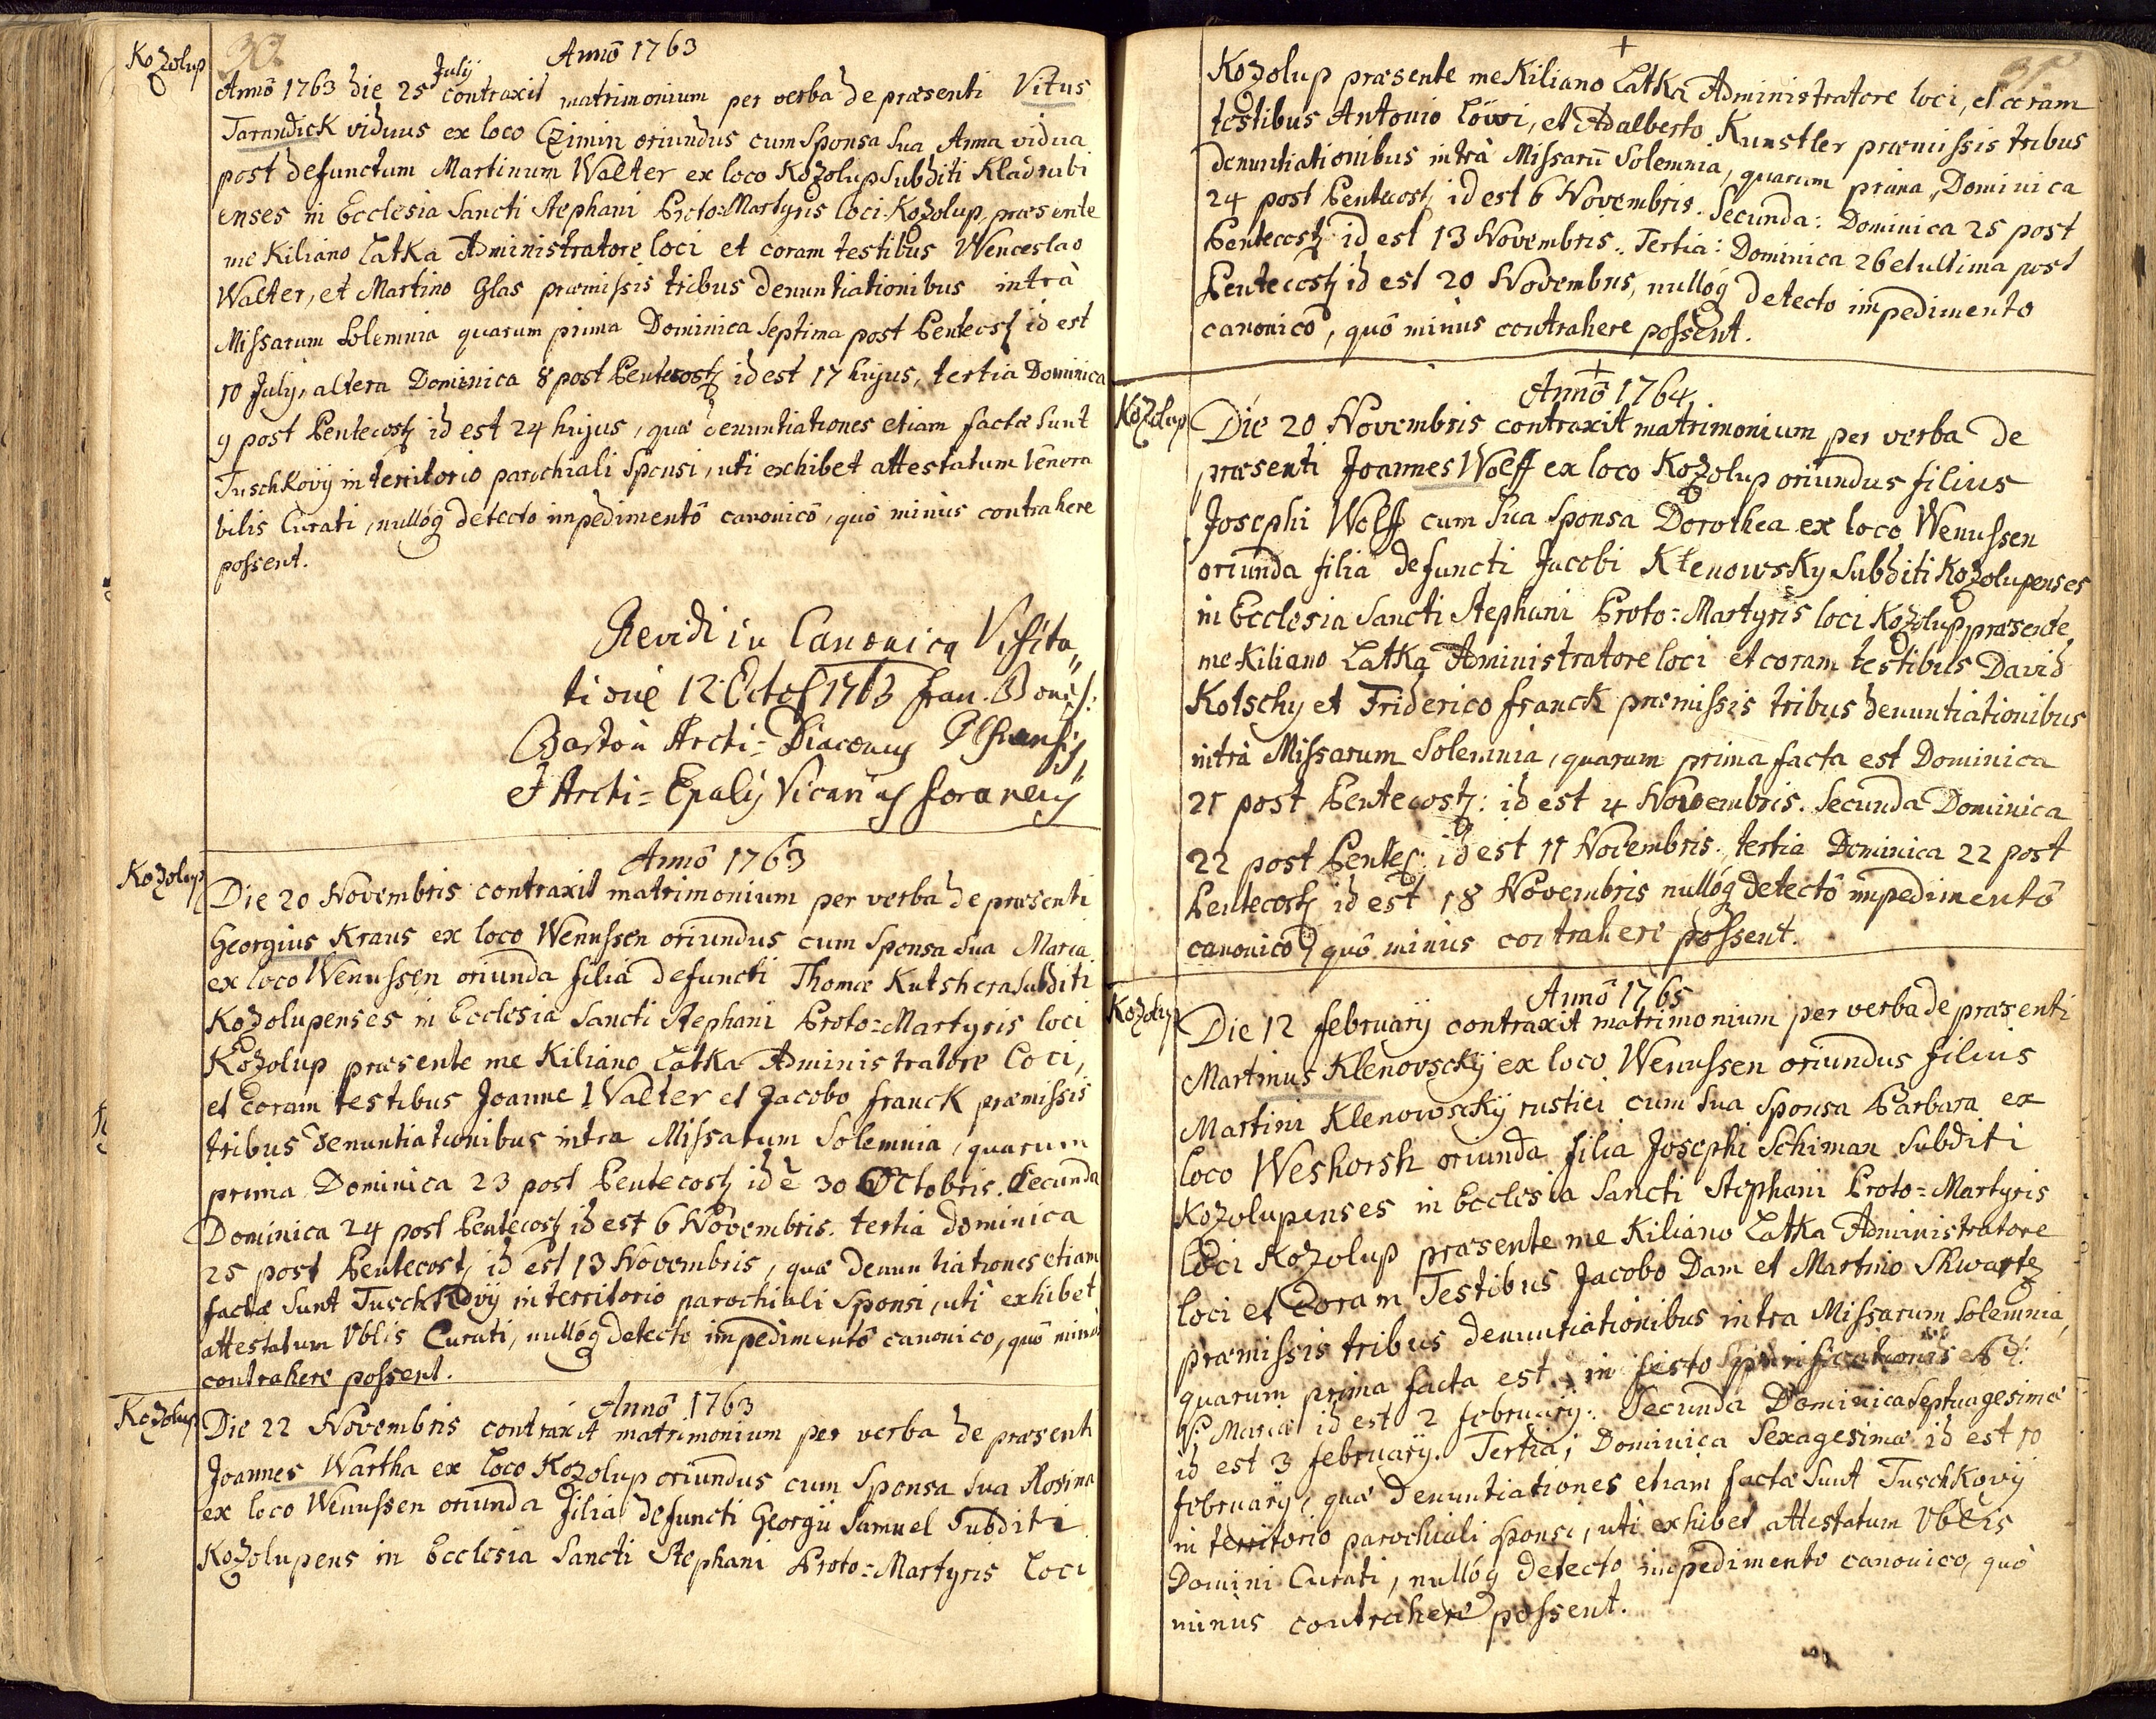 Kozolup
30.
Annô 1763
July
Annô 1763 die 25 contraxit matrimonium per verba de præsenti Vitus
Tarandick viduus ex loco Czimin oriundus cum Sponsa Sua Anna vidua
post defunctum Martinum Walter ex loco Kozolup Subditi Kladrubi
enses in Ecclesia Sancti Stephani Proto=Martyris loci Kozolup, præsente
me Kiliano Latka Administratore loci et coram testibus Wenceslao
Walter, et Martino Glas præmissis tribus denuntiationibus intrà
Missarum Solemnia quarum prima Dominica Septima post Pentecost: id est
10 July, altera Dominica 8 post Pentecost: id est 17 hujus, tertia Dominica
9 post Pentecost: id est 24 hujus, quæ denuntiationes etiam factæ Sunt
Tuschkovÿ in territorio parochiali Sponsi, uti exhibet attestatum Venera
bilis Curati, nullóq detecto impedimentô canonicô, quô minùs contrahere
possent.
Revidi in Canonica Visita„
tione 12 Octob 1763 Fran.
Barton Archi=Diaconus Plsnensis,
et Archi=Epalis Vicarius foraneus
Kozolup
Annô 1763
Die 20 Novembris contraxit matrimonium per verba de præsenti
Georgius Kraus ex loco Wenussen oriundus cum Sponsa Sua Maria
ex loco Wenussen oriunda filia defuncti Thomæ Kutshera Subditi
Kozolupenses in Ecclesia Sancti Stephani Proto=Martyris loci
Kozolup præsente me Kiliano Latka Administratore Loci,
et Coram testibus Joanne Walter et Jacobo Franck præmissis
tribus denuntiationibus intra Missarum Solemnia, quarum
prima Dominica 23 post Pentecost: id ê 30 Octobris. Secunda
Dominica 24 post Pentecost: id est 6 Novembris. tertia dominica
25 post Pentecost: id est 13 Novembris, quæ denuntiationes etiam
factæ Sunt Tuschkovÿ in territorio parochiali Sponsi, uti exhibet
attestatum Vblis Curati, nullóq detecto impedimentô canonico, quô minus
contrahere possent.
Kozolup
Annô 1763
Die 22 Novembris contraxit matrimonium per verba de præsenti
Joannes Wartha ex Loco Kozolup oriundus cum Sponsa Sua Rosina
ex loco Wenussen oriunda filia defuncti Georgii Samuel Subditi
Kozolupens in Ecclesia Sancti Stephani Proto=Martyris Loci
31.
Kozolup præsente me Kiliano Latka Administratore loci, et coram
testibus Antonio Löwi, et Adalberto Kunstler præmissis tribus
denuntiationibus intrà Missarū Solemnia, quarum prima Dominica
24 post Pentecost: id est 6 Novembris. Secunda: Dominica 25 post
Pentecost: id est 13 Novembris. Tertia: Dominica 26 et ultima post
Pentecost: id est 20 Novembris, nullóq detecto impedimento
canonicô, quô minùs contrahere possent.
Kozolup
Annô 1764
Die 20 Novembris contraxit matrimonium per verba de
præsenti Joannes Wolff ex loco Kozolup oriundus filius
Josephi Wolff cum Sua Sponsa Dorothea ex loco Wenussen
oriunda filia defuncti Jacobi Klenowsky Subditi Kozolupenses
in Ecclesia Sancti Stephani Proto=Martyris loci Kozolup præsente
me Kiliano Latka Administratore loci et coram testibus David
Kotschy et Friderico Franck præmissis tribus denuntiationibus
intrà Missarum Solemnia, quarum prima facta est Dominica
21 post Pentecost: id est 4 Novembris. Secunda Dominica
22 post Pentec: id est 11 Novembris. tertia Dominica 22 post
Pentecost: id est 18 Novembris nullóq detectô impedimentô
canonicô, quô minùs contrahere possent.
Kozolup
Annô 1765
Die 12 february contraxit matrimonium per verba de præsenti
Martinus Klenovsckÿ ex loco Wenussen oriundus filius
Martini Klenowsckÿ rustici cum Sua Sponsa Barbara ex
loco Weshorsh oriunda filia Josephi Schiman Subditi
Kozolupenses in Ecclesia Sancti Stephani Proto=Martyris
loci Kozolup præsente me Kiliano Latka Administratore
loci et Coram Testibus Jacobo Dam et Martino Shwartz
præmissis tribus denuntiationibus intra Missarum Solemnia,
quarum prima facta est in festo purificationis B:
V: Mariæ id est 2 february. Secunda Dominica Septuagesimæ
id est 3 february. Tertia; Dominica Sexagesimæ id est 10
february, quæ denuntiationes etiam factæ Sunt Tuschkovÿ
in territorio parochiali Sponsi, uti exhibet attestatum Vblis
Domini Curati, nullóq detecto impedimento canonico, quò
minùs contrahere possent.